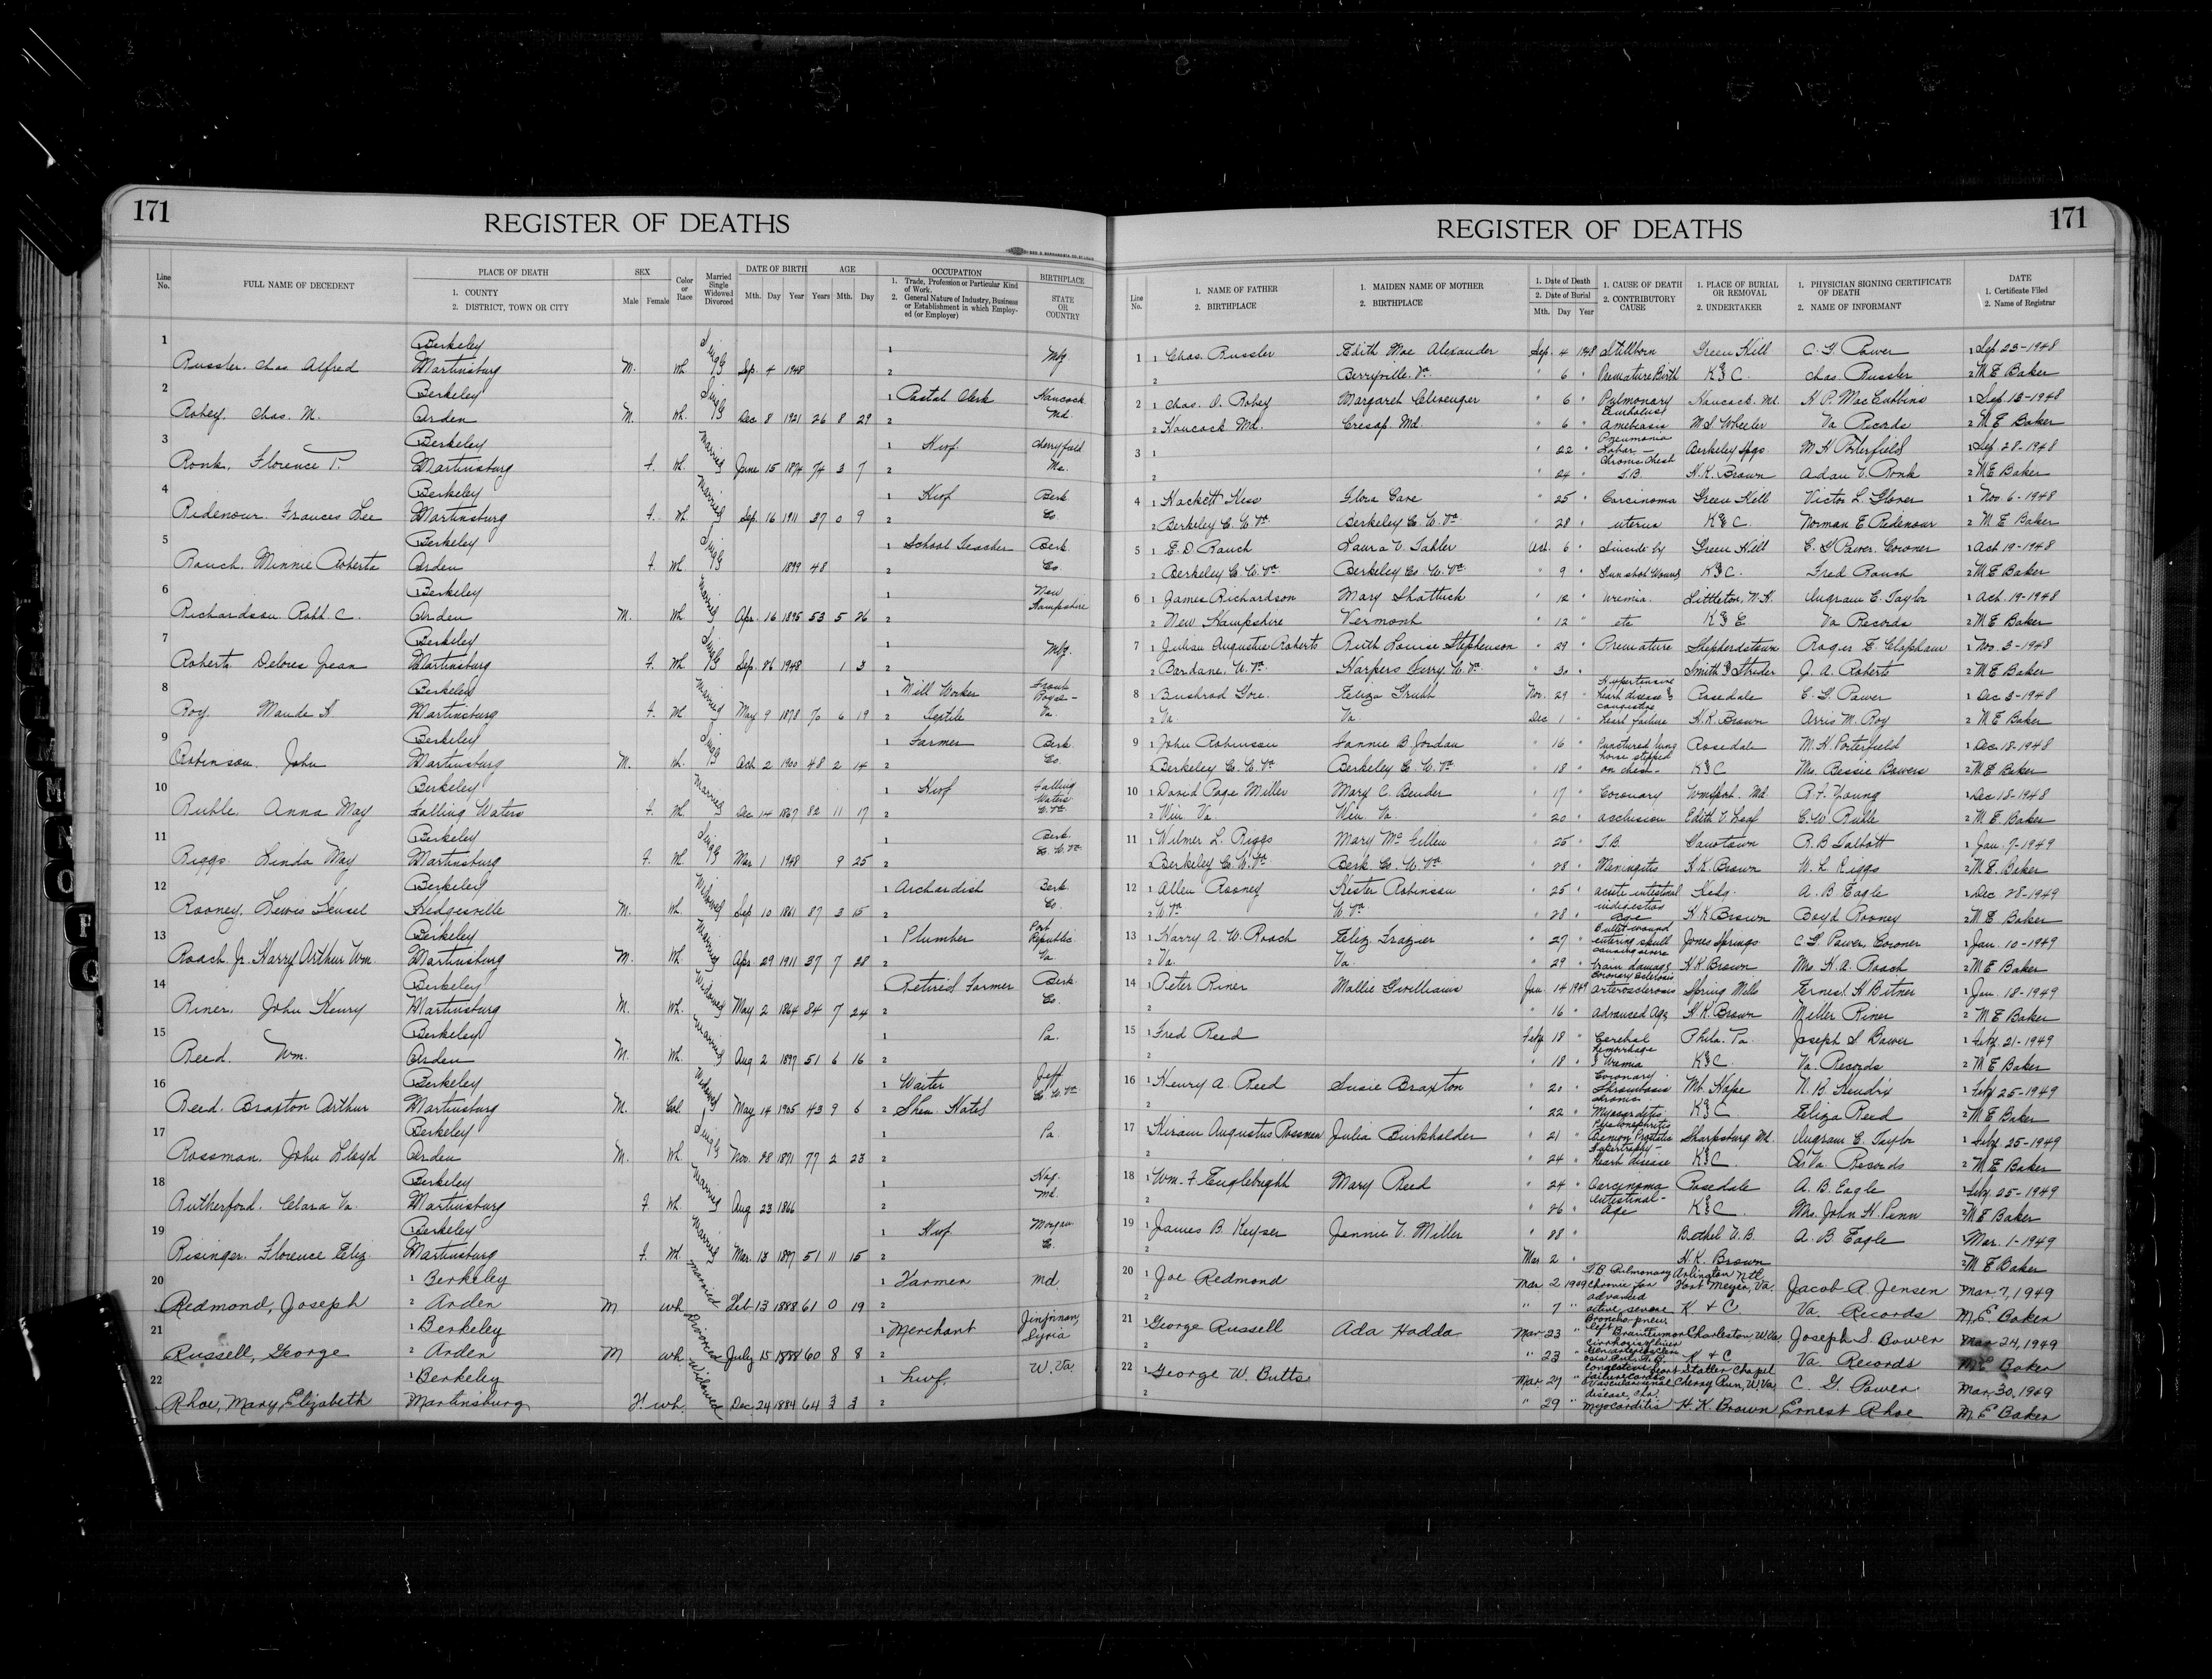 171
REGISTER OF DEATHS
Line No.
FULL NAME OF DECEDENT
PLACE OF DEATH
1. COUNTY
2. DISTRICT, TOWN OR CITY
SEX
Male Female
Color or Race
Married Single Widowed Divorced
DATE OF BIRTH
Mth. Day Year
AGE
Years Mth. Day
OCCUPATION
1. Trade, Profession or Particular Kind of Work.
2. General Nature of Industry, Business or Establishment in which Employed (or Employer)
BIRTHPLACE
STATE OR COUNTRY
1 Berkeley Single 1 Mbg
Russler. Chas Alfred Martinsburg M. Wh. Sep. 4 1948 2
2 Berkeley Single 1 Postal Clerk Hancock
Robey. Chas. M. Arden M. Wh. Dec 8 1921 26 8 29 2 Md.
3 Berkeley Married 1 Hwf. Cherryfield
Ronk. Florence P. Martinsburg F. Wh. June 15 1874 74 3 7 2 Me.
4 Berkeley Married 1 Hwf Berk
Ridenour. Frances Lee Martinsburg F. Wh. Sep. 16 1911 37 0 9 2 Co.
5 Berkeley Single 1 School Teacher Berk.
Rauch. Minnie Roberta Arden F. Wh. 1899 48 2 Co.
6 Berkeley Married 1 New Hampshire
Richardson. Robt. C. Arden M. Wh. Apr. 16 1895 53 5 26 2
7 Berkeley Single 1 Mbg.
Roberts Delores Jean Martinsburg F. Wh. Sep. 26 1948 1 3 2
8 Berkeley Married 1 Mill Worker Front Royal-
Roy. Maude H Martinsburg F. Wh May 9 1878 70 6 19 2 Textile Va.
9 Berkeley Single 1 Farmer Berk.
Robinson. John Martinsburg M. Wh. Oct. 2 1900 48 2 14 2 Co.
10 Berkeley Married 1 Hwf Falling Waters
Ruble. Anna May Falling Waters F. Wh. Dec. 14 1867 82 11 17 2 W. Va.
11 Berkeley Single 1 Berk.
Riggs. Linda May Martinsburg F. Wh Mar 1 1948 9 25 2 Co. W. Va.
12 Berkeley Widowed 1 Orchardist Berk.
Rooney. Lewis Hedgesville M. Wh. Sep 10 1861 87 3 15 2 Co.
13 Berkeley Married 1 Plumber Port Republic
Roach Jr. Harry Arthur Wm. Martinsburg M. Wh Apr. 29 1911 37 7 28 2 Va.
14 Berkeley Widowed Retired Farmer Berk.
Riner. John Henry Martinsburg M. Wh. May 2 1864 84 7 24 2 Co.
15 Berkeley Married 1 Pa.
Reed. Wm. Arden M. Wh. Aug 2 1897 51 6 16 2
16 Berkeley Widowed 1 Waiter Jeff
Reed. Braxton Arthur Martinsburg M. Col May 14 1905 43 9 6 2 Shen. Hotel Co W. Va.
17 Berkeley Single 1 Pa.
Rossman. John Lloyd Arden M. Wh. Nov. 28 1871 77 2 23 2
18 Berkeley Married 1 Hag.
Rutherford. Clara Va. Martinsburg F. Wh. Aug 23 1866 2 Md.
19 Berkeley Married 1 Hwf. Morgan
Risinger. Florence Eliz. Martinsburg F. Wh. Mar. 13 1897 51 11 15 2 Co.
20 1 Berkeley Married 1 Farmer Md.
Redmond, Joseph 2 Arden M wh Feb 13 1888 61 0 19 2
21 1 Berkeley Divorced 1 Merchant Syria
Russell, George 2 Arden M wh July 15 1888 60 8 8 2
22 1 Berkeley Widowed 1 hwf W. Va.
Rhoe, Mary, Elizabeth Martinsburg F. wh. Dec. 24 1884 64 3 3 2
171
REGISTER OF DEATHS
Line No.
1. NAME OF FATHER
2. BIRTHPLACE
1. MAIDEN NAME OF MOTHER
2. BIRTHPLACE
1. Date of Death
2. Date of Burial
Mth. Day Year
1. CAUSE OF DEATH
2. CONTRIBUTORY CAUSE
1. PLACE OF BURIAL OR REMOVAL
2. UNDERTAKER
1. PHYSICIAN SIGNING CERTIFICATE OF DEATH
2. NAME OF INFORMANT
DATE
1. Certificate Filed
2. Name of Registrar
1 1 Chas. Russler Edith Mae Alexander Sep. 4 1948 Stillborn Green Hill C. G. Power 1 Sep 23-1948
2 Berryville. Va. " 6 " Premature Birth K & C. Chas. Russler 2 M E Baker
2 1 Chas. O. Robey Margaret Clevenger " 6 " Pulmonary Embolus Hancock. Md. H P. MacCubbins 1 Sep. 13-1948
2 Hancock Md. Cresap. Md. " 6 " Amebiasis M. S Wheeler Va Records 2 M E Baker
3 1 " 22 " Pneumonia Lobar - Berkeley Spgs. M. H Porterfield 1 Sep. 28-1948
2 " 24 " Chronic Chest T.B. H. K. Brown Adam V. Ronk 2 M E Baker
4 1 Hackett Hess Flora Care " 25 " Carcinoma Green Hill Victor L. Glover 1 Nov. 6-1948
2 Berkeley C. W. Va. Berkeley C. W. Va. " 28 " uterus K & C. Norman E Ridenour 2 M E Baker
5 1 E. D. Rauch Laura V. Tabler Oct. 6 " Suicide by Green Hill C. G Power. Coroner 1 Oct 19-1948
2 Berkeley C. W. Va. Berkeley Co. W. Va. " 9 " Gun shot Wound K & C. Fred Rauch 2 M E Baker
6 1 James Richardson Mary Shattuck " 12 " Uremia. Littleton, N. H. Ingram C. Taylor 1 Oct. 19-1948
2 New Hampshire Vermont " 12 " etc K & C Va Records 2 M E Baker
7 1 Julian Augustus Roberts Ruth Louise Stephenson " 29 " Premature Shepherdstown Roger E. Clapham 1 Nov. 3-1948
2 Bardane. W. Va. Harpers Ferry W. Va " 30 " Smith & Strider J. A. Roberts 2 M E Baker
8 1 Bushrod Gore. Eliza Grubb Nov. 29 " Hypertensive heart disease & Rosedale C. G. Power 1 Dec 3-1948
2 Va. Va. Dec 1 " congestive heart failure H. K. Brown Arris M. Roy 2 M E Baker
9 1 John Robinson Fannie B Jordan " 16 " Punctured lung Rosedale M. H. Porterfield 1 Dec. 18-1948
Berkeley C. W. Va Berkeley C. W. Va " 18 " horse stepped on chest- K & C Mrs. Bessie Bowers 2 M E Baker
10 1 David Page Miller Mary C. Bender " 17 " Coronary Wmsport. Md. R. F. Young 1 Dec 18-1948
2 Win. Va. Win. Va. " 20 " occlusion Edith V. Leaf C. W Ruble 2 M E. Baker
11 1 Wilmer L. Riggs Mary Mc Fillen " 25 " T.B. R. B. Talbott 1 Jan. 7-1949
Berkeley C. W. Va Berk Co. W. Va " 28 " Meningitis H. K. Brown W. L. Riggs 2 M E. Baker
12 1 Allen Rooney Hester Robinson " 25 " acute intestinal indigestion Hedg. A. B Eagle 1 Dec 28-1949
2 W. Va. W. Va. " 28 " Age H. K Brown Boyd Rooney 2 M E Baker
13 1 Harry A. W. Roach Eliz. Frazier " 27 " Bullet wound entering skull Jones Springs C. G. Power. Coroner 1 Jan. 10-1949
2 Va. Va. " 29 " causing severe brain damage H. K Brown Mrs. H. A. Roach 2 M E Baker
14 1 Peter Riner Mallie Gwilliams Jan. 14 1949 Coronary sclerosis arterosclerosis Spring Mills Ernest. H Bitner 1 Jan. 18-1949
2 " 16 " advanced age H. K. Brown Miller Riner 2 M E Baker
15 1 Fred Reed Feby 18 " Cerebral Hemorrhage Phila. Pa. Joseph S Bower 1 Feby. 21-1949
2 " 18 " & Uremia K & C. Va Records 2 M E Baker
16 1 Henry A. Reed Susie Braxton " 20 " Coronary Thrombosis Mt. Hope N. B. Hendrix 1 Feby 25-1949
2 " 22 " chronic Myocarditis K & C Eliza Reed 2 M E Baker
17 1 Hiram Augustus Rossman Julia Burkholder " 21 " Pyelonephritis Benign Prostatic Sharpsburg Md. Ingram C. Taylor 1 Feby. 25-1949
2 " 24 " Hypertrophy- Heart disease K & C Va. Records 2 M E Baker
18 1 Wm. F Englebright Mary Reed " 24 " Carcinoma Rosedale A. B. Eagle 1 Feby. 25-1949
2 " 26 " intestinal- Age K & C. Mrs. John H. Penn 2 M E Baker
19 1 James B. Keyser Jennie V. Miller " 28 " Bethel U. B. A. B. Eagle Mar. 1-1949
2 Mar 2 " H. K. Brown 2 M E Baker
20 1 Joe Redmond Mar 2 1949 T.B Pulmonary Chronic far Arlington Ntl. Fort Meyer, Va. Jacob A. Jensen Mar. 7, 1949
2 " 7 " advanced active severe K & C Va. Records M. E Baker
21 1 George Russell Ada Hadda Mar 23 " Broncho pneu. left Brain Tumor Charleston, W Va Joseph S. Bower Mar 24, 1949
" 23 " K & C Va. Records M. E Baker
22 1 George W. Butts Mar 27 " Congestive heart failure Statler Chapel Cherry Run, W Va C. G. Power Mar. 30, 1949
2 " 29 " disease, chr. myocarditis H. K. Brown Ernest Rhoe M. E Baker
M
N
O
P
Q